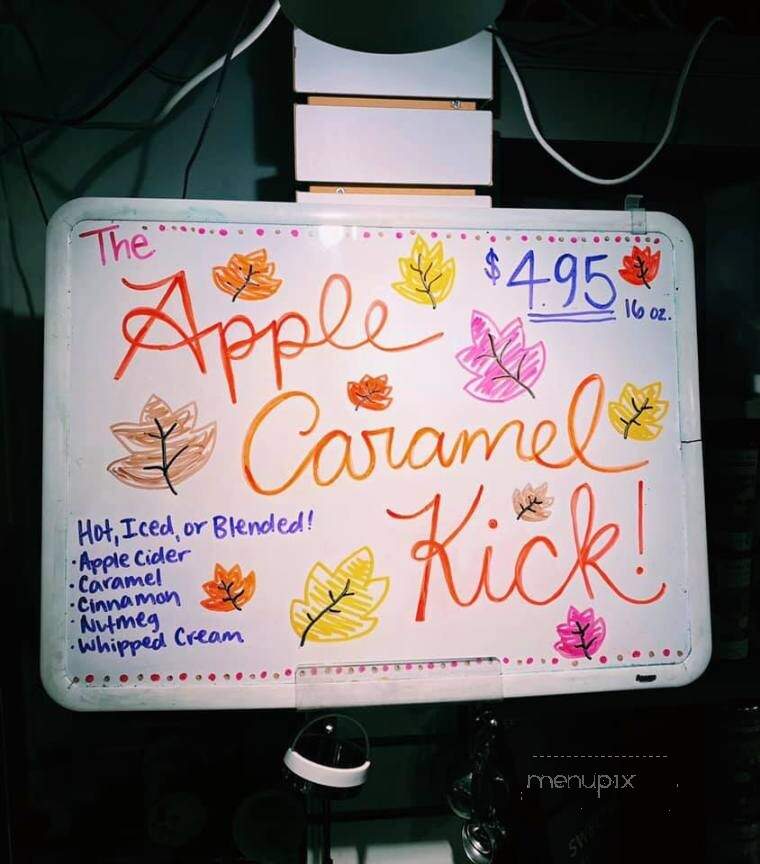 The
Apple
$4.95
16 oz.
Caramel
Kick!
Hot, Iced, or Blended!
· Apple Cider
· Caramel
· Cinnamon
· Nutmeg
· Whipped Cream
menupix